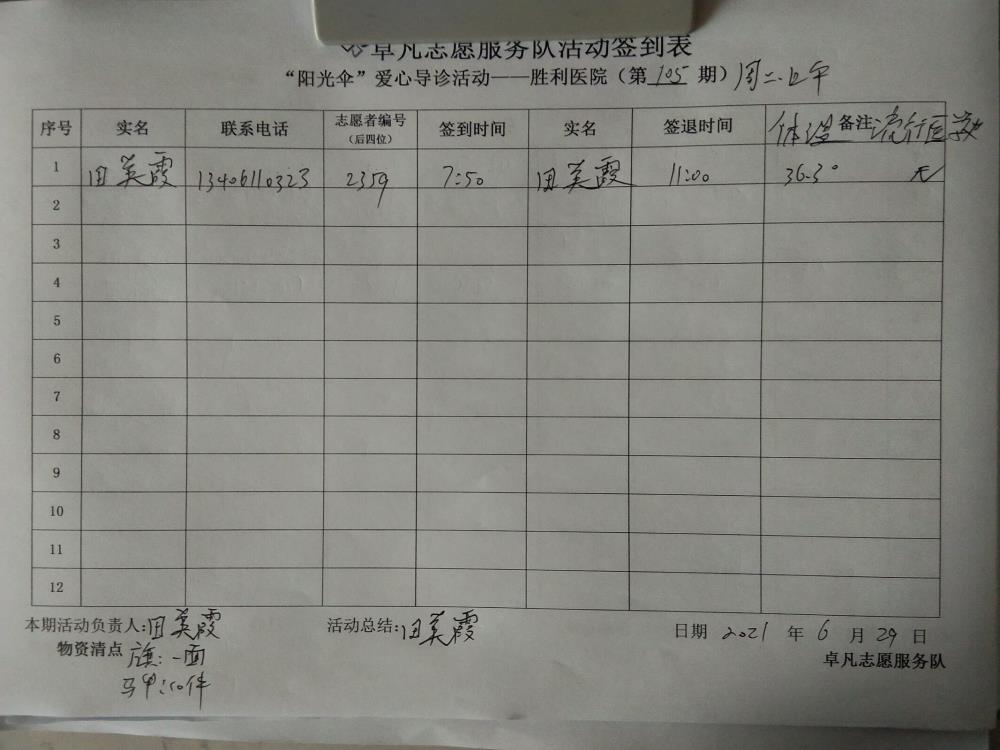 卓凡志愿服务队活动签到表
“阳光伞”爱心导诊活动——胜利医院（第 105 期）周二.上午
序号 实名 联系电话 志愿者编号（后四位） 签到时间 实名 签退时间 体温 备注 流行医学
1 田英霞 13406110323 2359 7:50 田英霞 11:00 36.3° 无
2
3
4
5
6
7
8
9
10
11
12
本期活动负责人:田英霞 活动总结:田英霞 日期 2021 年 6 月 29 日
物资清点 旗:一面 卓凡志愿服务队
马甲:10件